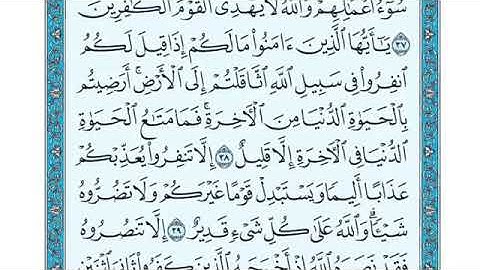 سُوٓءُ أَعْمَٰلِهِمْ وَٱللَّهُ لَا يَهْدِى ٱلْقَوْمَ ٱلْكَٰفِرِينَ
٣٧ يَٰٓأَيُّهَا ٱلَّذِينَ ءَامَنُوا۟ مَا لَكُمْ إِذَا قِيلَ لَكُمُ
ٱنفِرُوا۟ فِى سَبِيلِ ٱللَّهِ ٱثَّاقَلْتُمْ إِلَى ٱلْأَرْضِ ۚ أَرَضِيتُم
بِٱلْحَيَوٰةِ ٱلدُّنْيَا مِنَ ٱلْءَاخِرَةِ ۚ فَمَا مَتَٰعُ ٱلْحَيَوٰةِ
ٱلدُّنْيَا فِى ٱلْءَاخِرَةِ إِلَّا قَلِيلٌ ٣٨ إِلَّا تَنفِرُوا۟ يُعَذِّبْكُمْ
عَذَابًا أَلِيمًا وَيَسْتَبْدِلْ قَوْمًا غَيْرَكُمْ وَلَا تَضُرُّوهُ
شَيْـًٔا ۗ وَٱللَّهُ عَلَىٰ كُلِّ شَىْءٍ قَدِيرٌ ٣٩ إِلَّا تَنصُرُوهُ
فَقَدْ نَصَرَهُ ٱللَّهُ إِذْ أَخْرَجَهُ ٱلَّذِينَ كَفَرُوا۟ ثَانِىَ ٱثْنَيْنِ